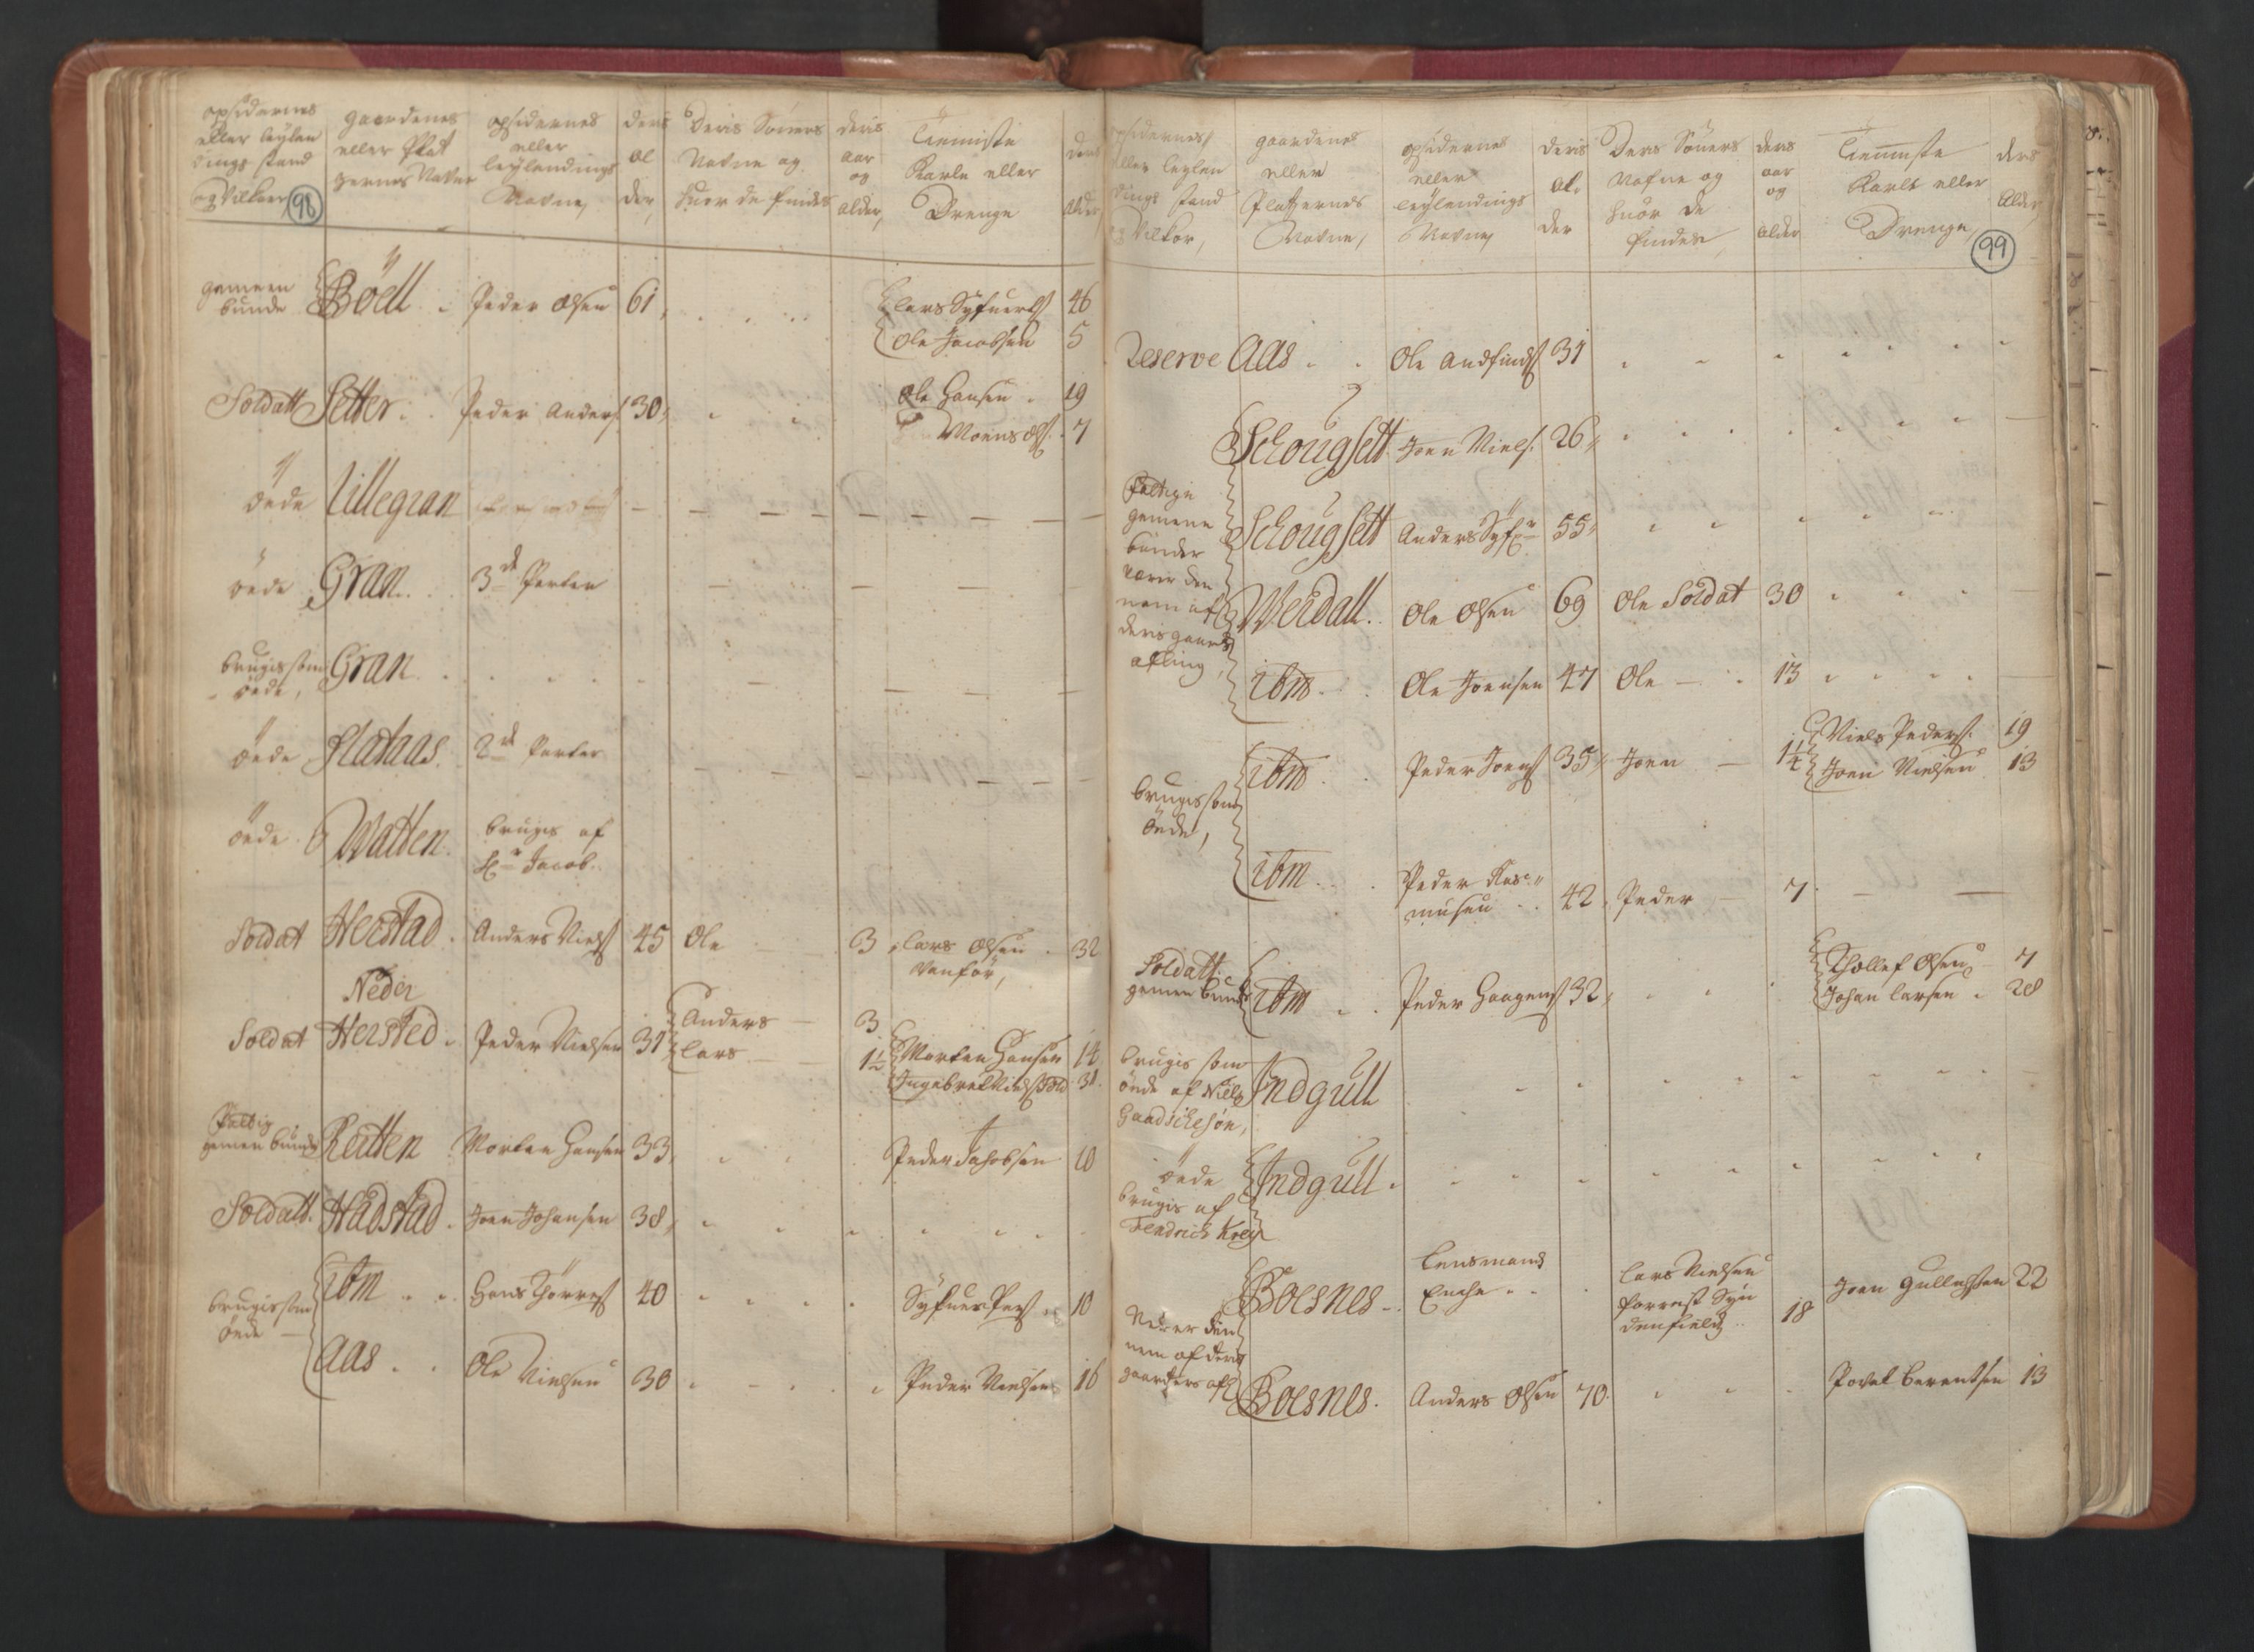 opsidernes eller leylendings stand og Vilkor, | gaardenes eller Pladzernes Nafne | opsidernes eller leylendings Nafne, | deris alder, | Deris Sönners Nafne og huor de findes | deris aar og alder, | Tienniste Karle eller Drenge | deris alder,
98
gemeen bunde | Böell | Peder Olsen | 61 | Lars Syfuerts | 46
Ole Jacobsen | 5
Soldatt | Setter | Peder Anders. | 30 | Ole Hansen | 19
Moens Ols. | 7
öede | Lillegran
öede | Gran | 3de Parten
brugis som öede, | Gran
öede | Flataas | 2de Parter
öede | Watten | brugis af Hr Jacob
Soldat | Herstad | Anders Niels | 45 | Ole | 3 | Lars Olsen | 32
Vanför,
Neder
Soldat | Hersted | Peder Nielsen | 31 | Anders | 3
Lars | 1½ | Morten Hansen | 14
Ingebret Niels Sold | 31
fattig gemen bunde | Reitten | Morten Hansen | 33 | Peder Jahobsen | 10
Soldatt | Hadstad | Joen Johansen | 38
brugis som öede | ibm | Hans Thörres | 40 | Syfuer Pers | 10
Aas | Ole Nielsen | 30 | Peder Nielsen | 16
opsidernes eller leylendings stand og Vilkor, | gaardenes eller Platzernes Nafne, | opsidernes eller leylendings Nafne, | deris alder | Deris Sönners Nafne og huor de findes, | deris aar og alder | Tienniste Karle eller Drenge, | deris Alder,
99
Reserve | Aas | Ole Andfinds | 31
Schougsett | Joen Niels. | 26
fattige gemene bönder | Schougsett | Anders Syf | 55
nerer dem nem af deris gaards afling, | Werdall | Ole Olsen | 69 | Ole Soldat | 30
ibm | Ole Joensen | 47 | Ole | 13
brugis som öede, | ibm | Peder Joens | 35 | Joen | 1¼ | Niels Peders. | 19
Joen Nielsen | 13
ibm | Peder Rasmusen | 42 | Peder | 7
Soldatt. gemen bunde | ibm | Peder Haagens | 32 | Thollef Olsen | 7
Johan Larsen | 28
brugis som öede af Niels | Indgull
öede brugis af Fendrich Krey | Indgull
Boesnes | Lensmands Enche | Lars Nielsen | 18 | Joen Gullachsen | 22
Nerer dem nem af deris gaarders afl | Boesnes | Anders Olsen | 70 | Povel Berentsen | 13